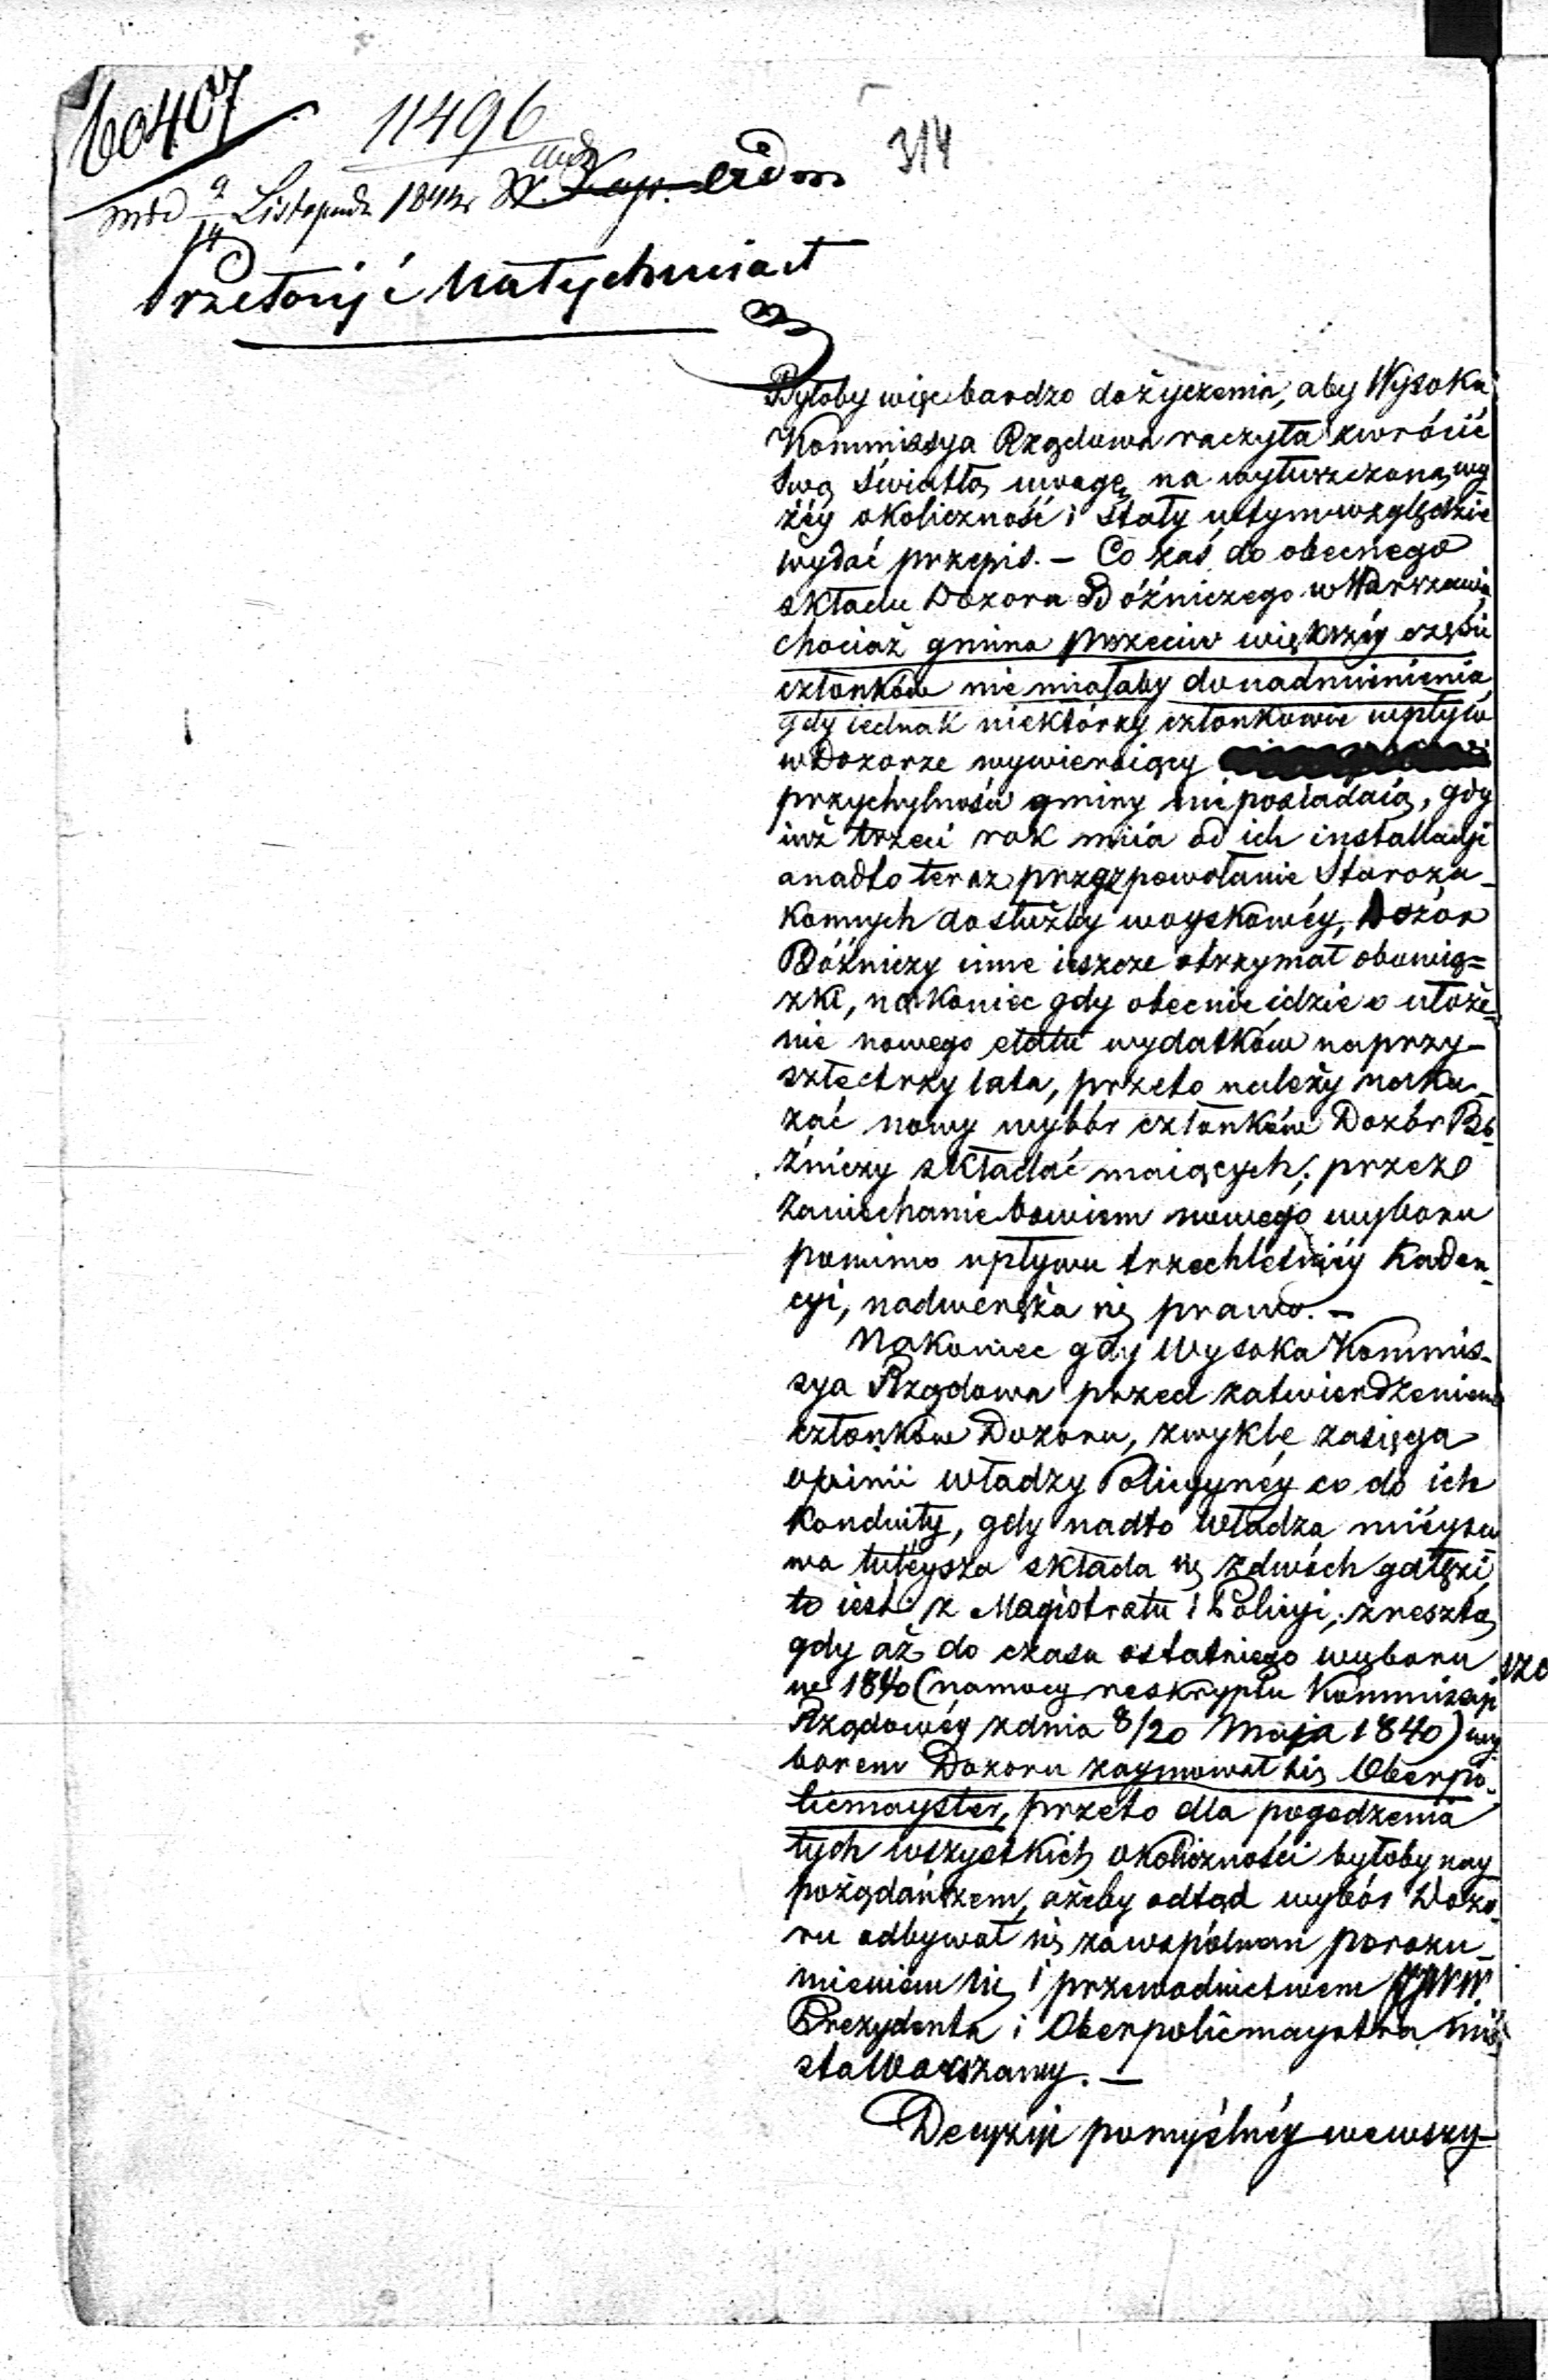 60407
11496
314
9 Listopada 184
Przełożyć natychmiast
Byłoby więc bardzo do życzenia, aby Wysoka
Kommissya Rządowa raczyła zwrócić
swą światłą uwagę na wyłuszczoną wy
żéy okoliczność i stały w tym względzie
wydać przepis. — Co zaś do obecnego
składu Dozoru Bóźniczego w Warszawie
chociaż gmina przeciw większéy części
członków nie miałaby do nadmienienia
gdy iednak niektórzy członkowie wpływ
w Dozorze wywieraiący
przychylności gminy nie posiadaią, gdy
iuż trzeci rok miia od ich installacyi
a nadto teraz przez powołanie Staroza-
konnych do służby woyskowéy, Dozór
Bóźniczy inne ieszcze otrzymał obowią=
zki, nakoniec gdy obecnie idzie o ułoże-
nie nowego etatu wydatków na przy-
szłe trzy lata, przeto należy naka-
zać nowy wybór członków Dozór Bó-
źniczy składać maiących; przez
zaniechanie bowiem nowego wyboru
pomimo upływu trzechletniéy Kaden-
cyi, nadweręża się prawo. —
Nakoniec gdy Wysoka Kommis-
sya Rządowa przed zatwierdzeniem
członków Dozoru, zwykle zasięga
opinii władzy Policyynéy co do ich
konduity, gdy nadto władza mieysco
wa tuteysza składa się z dwóch gałęzi,
to iest: z Magistratu i Policyi; zresztą
gdy aż do czasu ostatniego wyboru
w 1840 (na mocy reskryptu Kommissyi
Rządowéy z dnia 8/20 Maja 1840) wy
borem Dozoru zaymował się Oberpo-
licmayster, przeto dla pogodzenia
tych wszystkich okoliczności byłoby nay
pożądańszem, ażeby odtąd wybór Dozo-
ru odbywał się za wspólnem porozu-
mieniem się i przewodnictwem JJWW.
Prezydenta i Oberpolicmaystra mia-
sta Warszawy. —
Decyzyi pomyślnéy we wszy-